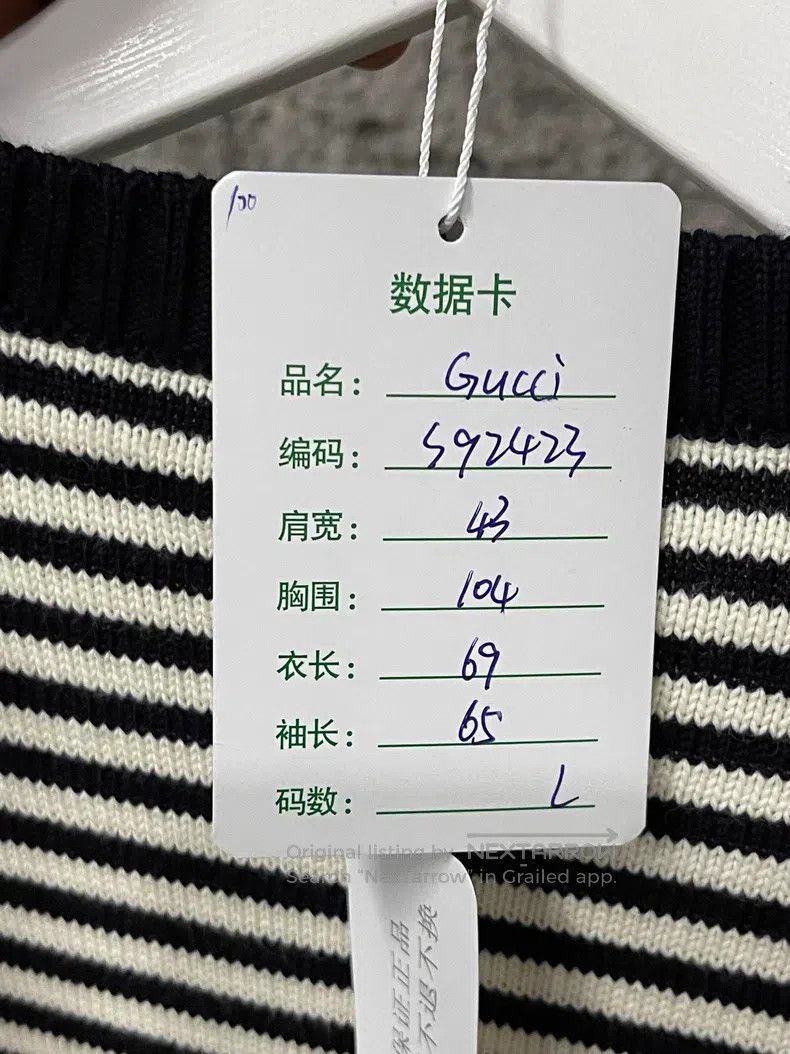 100
数据卡
品名： Gucci
编码： 592423
肩宽： 43
胸围： 104
衣长： 69
袖长： 65
码数： L
Original listing by NEXTARROW
Search "NextArrow" in Grailed app.
保证正品
不退不换